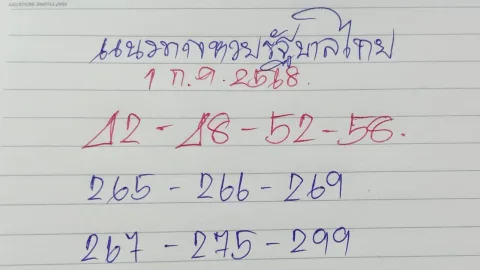 แนวทางหวยรัฐบาลไทย
1 ก.ค. 2568.
12 - 18 - 52 - 58.
265 - 266 - 269
267 - 275 - 299